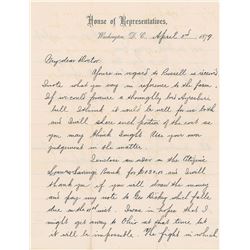 House of Representatives,
Washington, D. C. April 2nd 1879
My dear Doctor
Yours in regard to Russell is received
I note what you say in reference to the farm.
If we could procure a thoroughly bred Ayrshire
bull I think it would be well for us both
and I will share such portion of the cost as
you may think I ought Use your own
judgement in the matter.
I enclose an order on the
Savings Bank for and I will
thank you if you will draw the money
and pay my note to Geo which falls
due on the inst. I was in hopes that I
might get away to Ohio at that time, but
it will be impossible. The fight in which